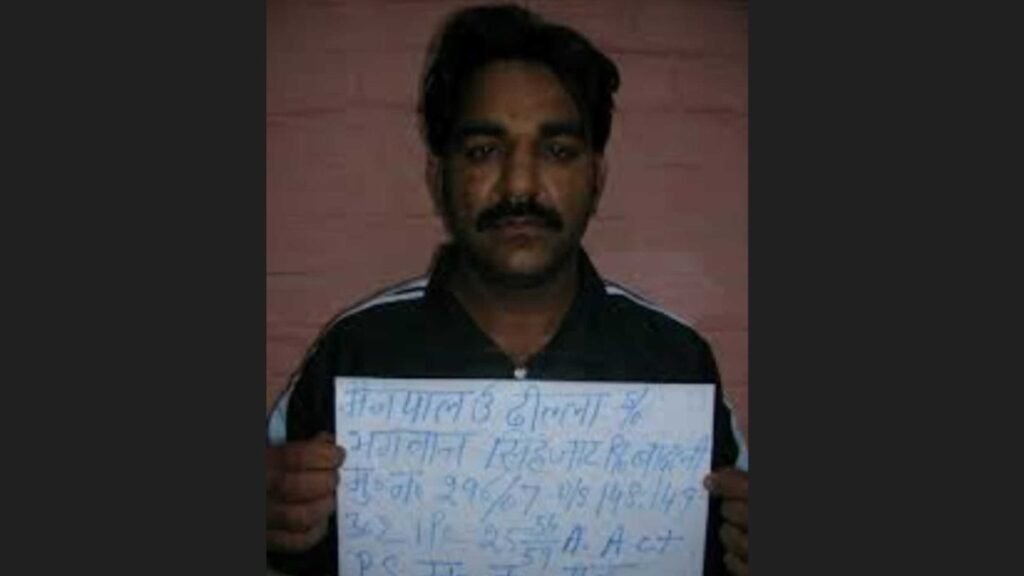 मैनपाल उ ढील्ला S/o
भगवान सिंह जाट R/o बादली
मु॰ नं॰ 296/07 U/S 148.149
302 IPC 25 54 59 A. Act
P.S